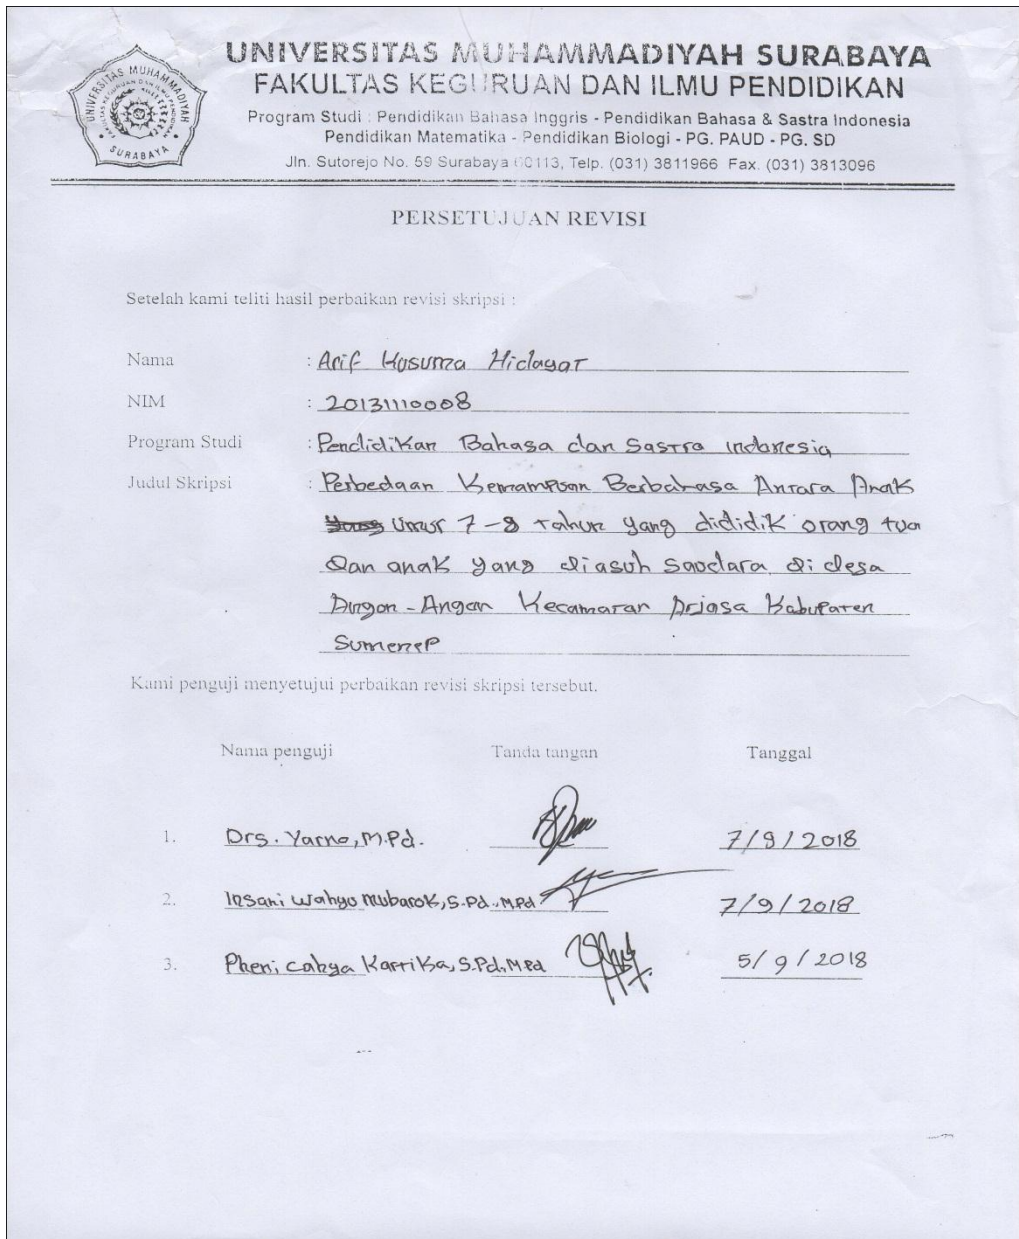 UNIVERSITAS MUHAMMADIYAH SURABAYA
FAKULTAS KEGURUAN DAN ILMU PENDIDIKAN
Program Studi : Pendidikan Bahasa Inggris - Pendidikan Bahasa & Sastra Indonesia
Pendidikan Matematika - Pendidikan Biologi - PG. PAUD - PG. SD
Jln. Sutorejo No. 59 Surabaya 60113, Telp. (031) 3811966 Fax. (031) 3813096
UNIVERSITAS MUHAMMADIYAH
SURABAYA
PERSETUJUAN REVISI
Setelah kami teliti hasil perbaikan revisi skripsi :
Nama : Arif Kusuma Hidayat
NIM : 20131110008
Program Studi : Pendidikan Bahasa dan Sastra Indonesia
Judul Skripsi : Perbedaan Kemampuan Berbahasa Antara Anak
Umur 7-8 tahun yang dididik orang tua
dan anak yang diasuh saudara di desa
Angon-Angon Kecamatan Arjasa Kabupaten
Sumenep
Kami penguji menyetujui perbaikan revisi skripsi tersebut.
Nama penguji Tanda tangan Tanggal
1. Drs. Yarno, M.Pd. 7/9/2018
2. Insani Wahyu Mubarok, S.Pd., M.Pd 7/9/2018
3. Pheni Cahya Kartika, S.Pd., M.Pd 5/9/2018